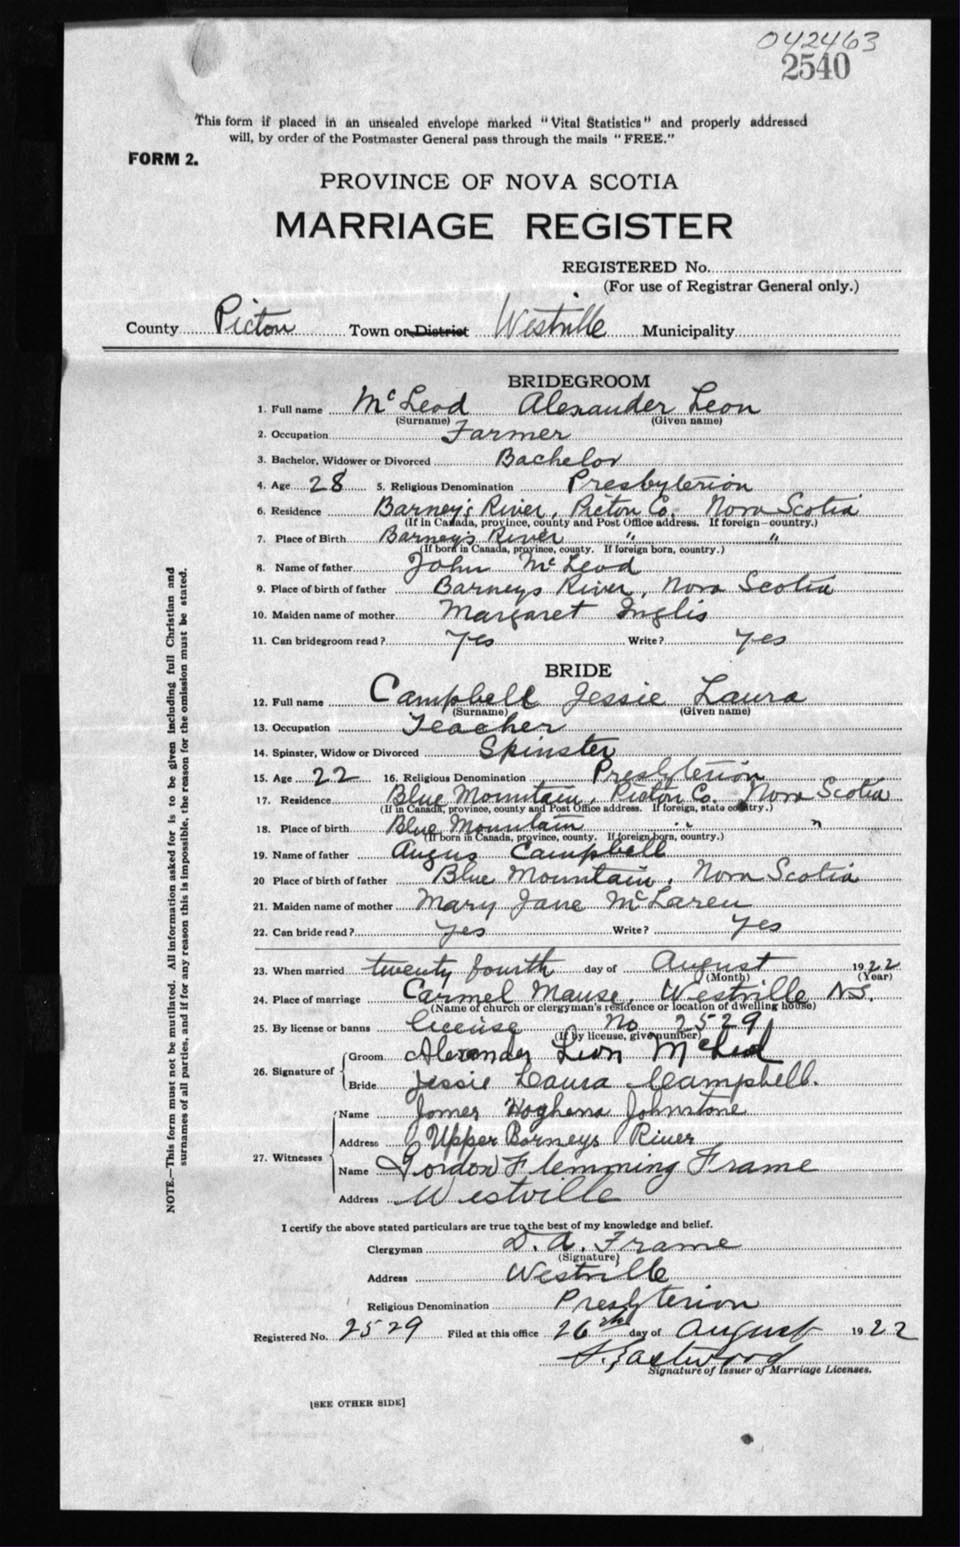 042463
2540
This form if placed in an unsealed envelope marked "Vital Statistics" and properly addressed
will, by order of the Postmaster General pass through the mails "FREE."
FORM 2.
PROVINCE OF NOVA SCOTIA
MARRIAGE REGISTER
REGISTERED No.
(For use of Registrar General only.)
County Picton Town or District Westville Municipality
BRIDEGROOM
1. Full name McLeod Alexander Leon
(Surname) (Given name)
2. Occupation Farmer
3. Bachelor, Widower or Divorced Bachelor
4. Age 28 5. Religious Denomination Presbyterion
6. Residence Barney's River, Picton Co. Nova Scotia
(If in Canada, province, county and Post Office address. If foreign—country.)
7. Place of Birth Barney's River " "
(If born in Canada, province, county. If foreign born, country.)
8. Name of father John McLeod
9. Place of birth of father Barneys River, Nova Scotia
10. Maiden name of mother Margaret Inglis
11. Can bridegroom read? Yes Write? Yes
BRIDE
12. Full name Campbell Jessie Laura
(Surname) (Given name)
13. Occupation Teacher
14. Spinster, Widow or Divorced Spinster
15. Age 22 16. Religious Denomination Presbyterion
17. Residence Blue Mountain, Picton Co. Nova Scotia
(If in Canada, province, county and Post Office address. If foreign, state country.)
18. Place of birth Blue Mountain " "
(If born in Canada, province, county. If foreign born, country.)
19. Name of father Angus Campbell
20 Place of birth of father Blue Mountain, Nova Scotia
21. Maiden name of mother Mary Jane McLaren
22. Can bride read? Yes Write? Yes
23. When married twenty fourth day of August 1922
(Month) (Year)
24. Place of marriage Carmel Manse, Westville N.S.
(Name of church or clergyman's residence or location of dwelling house)
25. By license or banns license No 2529
(If by license, give number)
26. Signature of
Groom Alexander Leon McLeod
Bride Jessie Laura Campbell.
27. Witnesses
Name Johnstone
Address Upper Barneys River
Name Gordon Flemming Frame
Address Westville
I certify the above stated particulars are true to the best of my knowledge and belief.
Clergyman D. A. Frame
(Signature)
Address Westville
Religious Denomination Presbyterion
Registered No. 2529 Filed at this office 26th day of August 1922
Eastwood
Signature of Issuer of Marriage Licenses.
[SEE OTHER SIDE]
NOTE.—This form must not be mutilated. All information asked for is to be given including full Christian and
surnames of all parties, and if for any reason this is impossible, the reason for the omission must be stated.